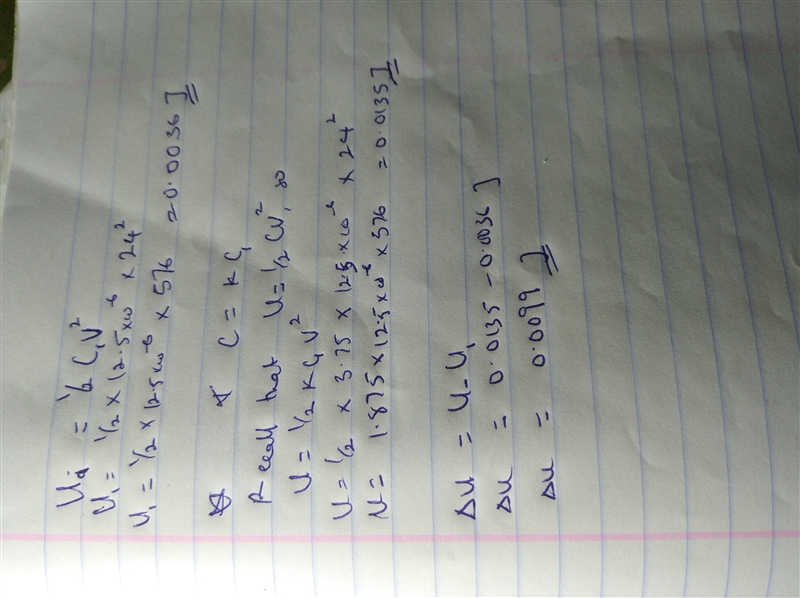 U₁ = ½ C₁V²
U₁ = ½ × 12.5×10⁻⁶ × 24²
U₁ = ½ × 12.5×10⁻⁶ × 576 = 0.0036 J
C = KC₁
Recall that U = ½ CV², so
U = ½ KC₁V²
U = ½ × 3.75 × 12.5×10⁻⁶ × 24²
U = 1.875 × 12.5×10⁻⁶ × 576 = 0.0135 J
ΔU = U - U₁
ΔU = 0.0135 - 0.0036 J
ΔU = 0.0099 J